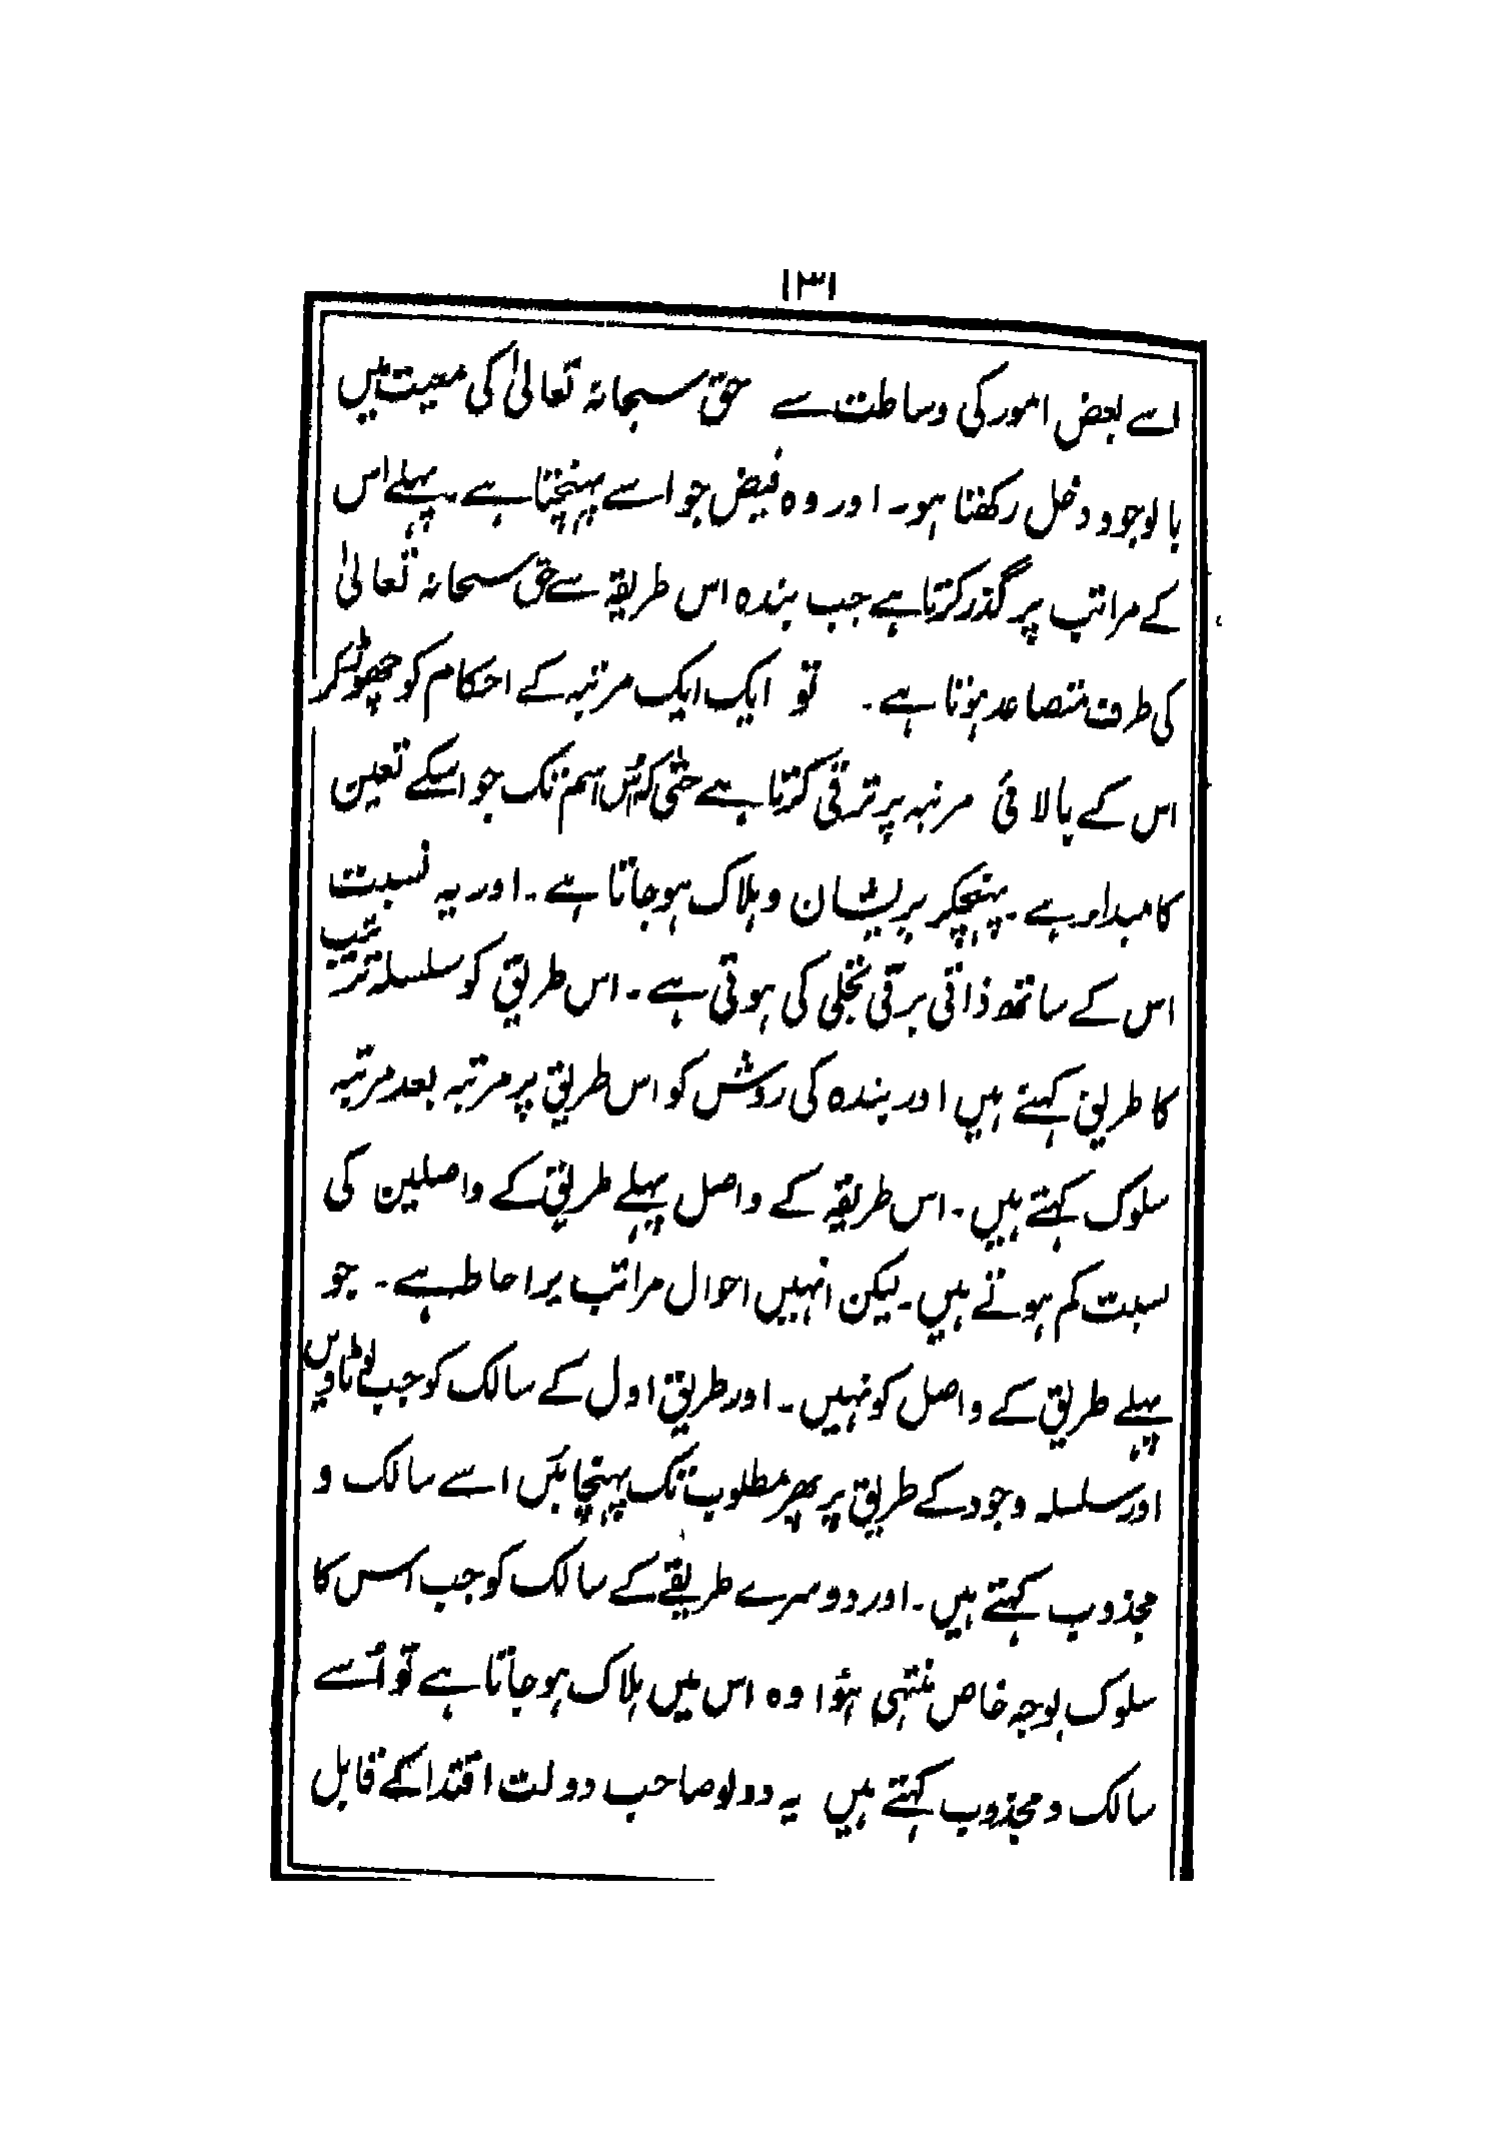 ۱۳۱
اسے بعض امور کی وساطت سے حق سبحانہ تعالیٰ کی معیت میں
بالوجود دخل رکھتا ہو۔ اور وہ فیض جو اسے پہنچتا ہے۔ پہلے اس
کے مراتب پر گذر کرتا ہے جب بندہ اس طریقہ سے حق سبحانہ تعالیٰ
کی طرف متصاعد ہوتا ہے۔ تو ایک ایک مرتبہ کے احکام کو چھوڑ کر
اس کے بالائی مرتبہ پر ترقی کرتا ہے حتّٰی کہ اُس اسم تک جو اسکے تعین
کا مبداء ہے۔ پہنچکر پریشان و ہلاک ہو جاتا ہے۔ اور یہ نسبت
اس کے ساتھ ذاتی برقی تجلی کی ہوتی ہے۔ اس طریق کو سلسلہ ترتیب
کا طریق کہتے ہیں اور بندہ کی روش کو اس طریق پر مرتبہ بعد مرتبہ
سلوک کہتے ہیں۔ اس طریقہ کے واصل پہلے طریق کے واصلین کی
نسبت کم ہوتے ہیں۔ لیکن انہیں احوال مراتب پر احاطہ ہے۔ جو
پہلے طریق کے واصل کو نہیں۔ اور طریق اول کے سالک کو جب لوٹا دیں
اور سلسلہ وجود کے طریق پر پھر مطلوب تک پہنچائیں اسے سالک و
مجذوب کہتے ہیں۔ اور دوسرے طریقے کے سالک کو جب اس کا
سلوک بوجہ خاص منتہی ہؤا وہ اس میں ہلاک ہو جاتا ہے تو اُسے
سالک و مجذوب کہتے ہیں یہ دولو صاحب دولت اقتدا کے قابل